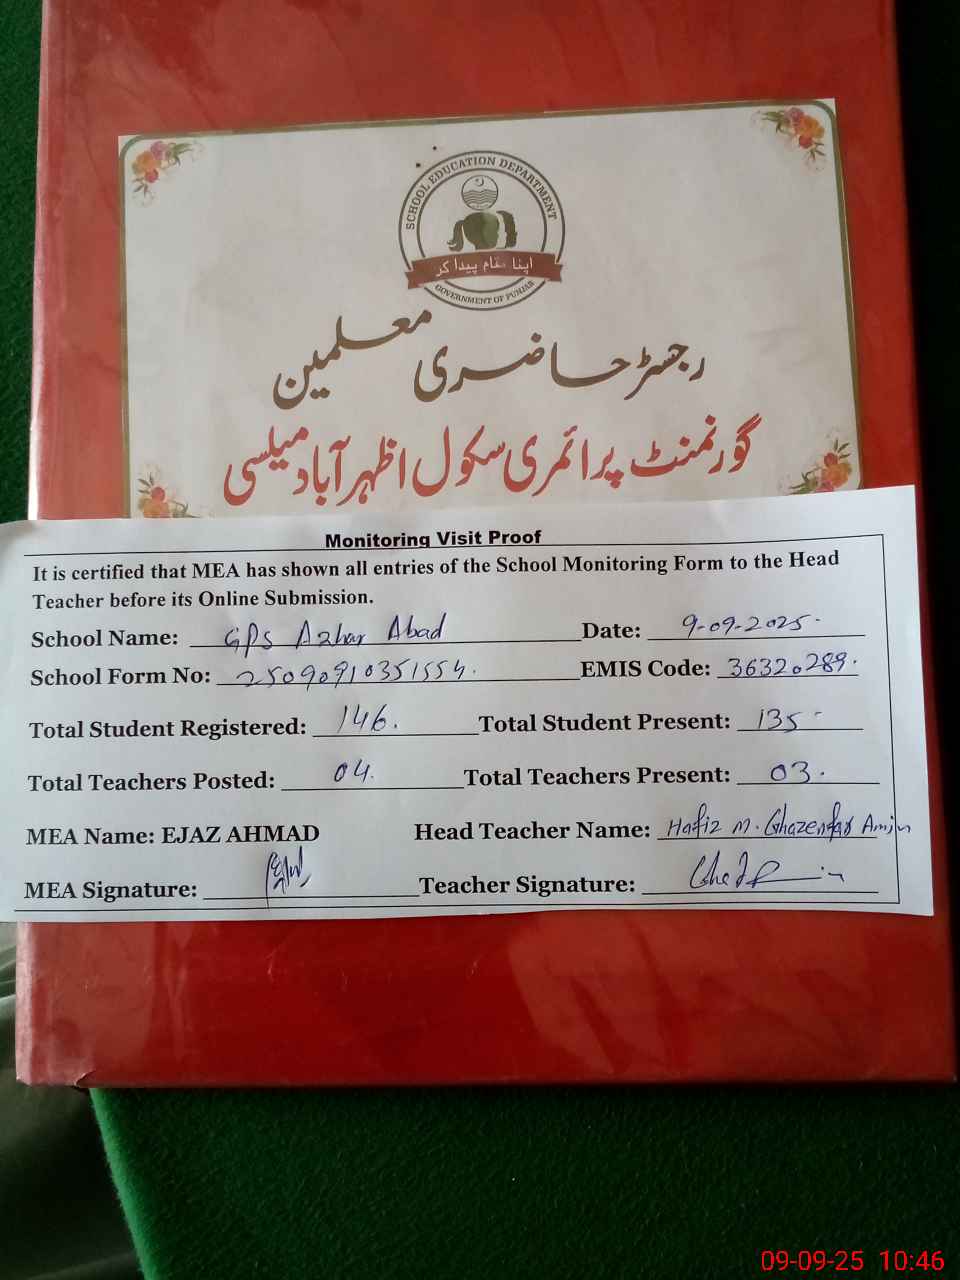 SCHOOL EDUCATION DEPARTMENT
اپنا مقام پیدا کر
GOVERNMENT OF PUNJAB
رجسٹر حاضری معلمین
گورنمنٹ پرائمری سکول اظہر آباد میلسی
Monitoring Visit Proof
It is certified that MEA has shown all entries of the School Monitoring Form to the Head
Teacher before its Online Submission.
School Name: GPS Azhar Abad Date: 9-09-2025.
School Form No: 25090910351554. EMIS Code: 36320289.
Total Student Registered: 146. Total Student Present: 135-
Total Teachers Posted: 04. Total Teachers Present: 03.
MEA Name: EJAZ AHMAD Head Teacher Name: Hafiz M. Ghazenfar Amin
MEA Signature: Teacher Signature:
09-09-25 10:46